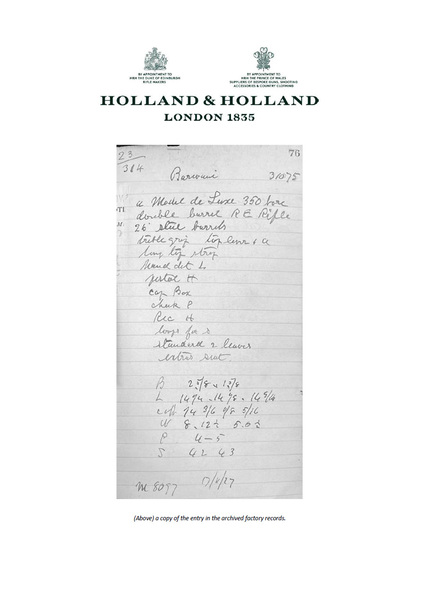 BY APPOINTMENT TO
HRH THE DUKE OF EDINBURGH
RIFLE MAKERS
BY APPOINTMENT TO
HRH THE PRINCE OF WALES
SUPPLIERS OF BESPOKE GUNS, SHOOTING
ACCESSORIES & COUNTRY CLOTHING
HOLLAND & HOLLAND
LONDON 1835
23
76
384
31075
a Model de Luxe 350 bore
double barrel R E Rifle
26" steel barrels
treble grip top lever & a
long top strip
hand det L
pistol H
cap Box
cheek P
Rec H
loops for s
standard 2 leaves
extra
B
L
W 8.12½ 5.0½
P 4-5
S 42 43
M 8097
(Above) a copy of the entry in the archived factory records.